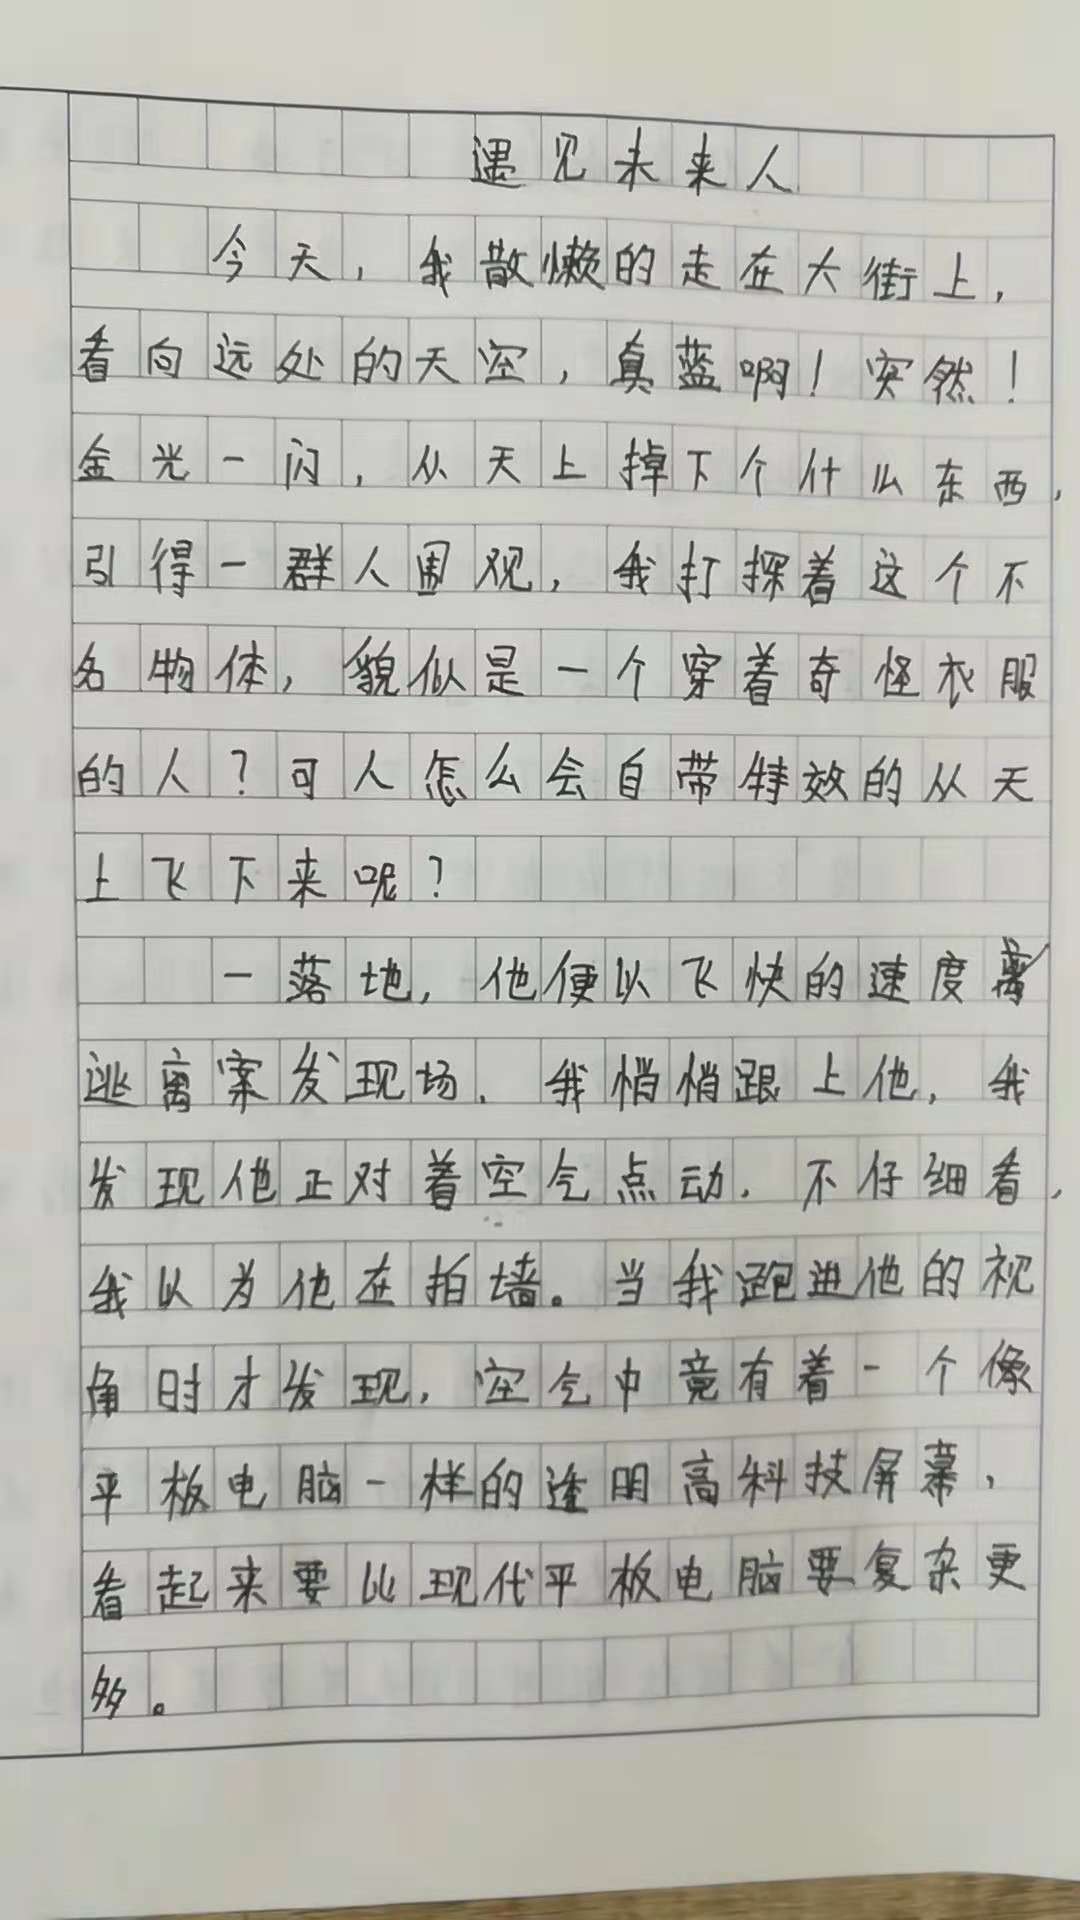 遇见未来人
今天，我散懒的走在大街上，
看向远处的天空，真蓝啊！突然！
金光一闪，从天上掉下个什么东西，
引得一群人围观，我打探着这个不
名物体，貌似是一个穿着奇怪衣服
的人？可人怎么会自带特效的从天
上飞下来呢？
一落地，他便以飞快的速度
逃离案发现场．我悄悄跟上他，我
发现他正对着空气点动．不仔细看，
我以为他在拍墙。当我跑进他的视
角时才发现，空气中竟有着一个像
平板电脑一样的透明高科技屏幕，
看起来要比现代平板电脑要复杂更
多。